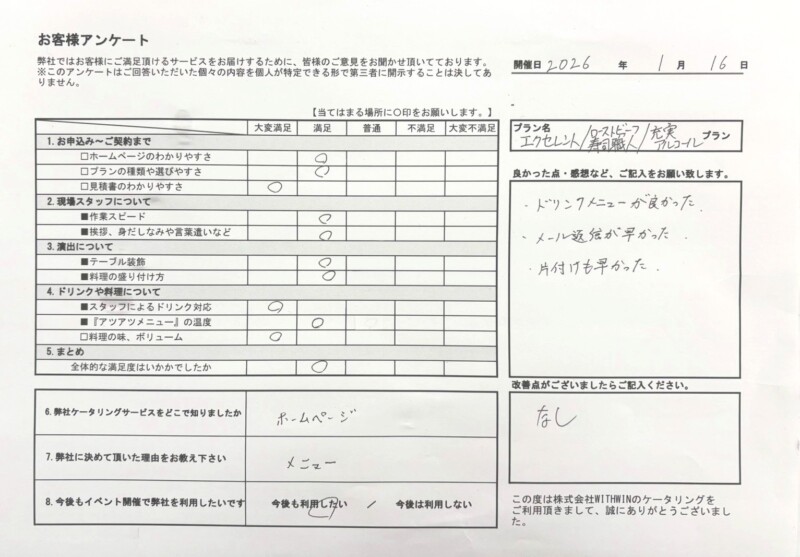 お客様アンケート
弊社ではお客様にご満足頂けるサービスをお届けするために、皆様のご意見をお聞かせ頂いております。
※このアンケートはご回答いただいた個々の内容を個人が特定できる形で第三者に開示することは決してあ
りません。
開催日 2026 年 1 月 16 日
【当てはまる場所に○印をお願いします。】
大変満足 満足 普通 不満足 大変不満足
1. お申込み～ご契約まで
□ホームページのわかりやすさ ○
□プランの種類や選びやすさ ○
□見積書のわかりやすさ ○
2. 現場スタッフについて
■作業スピード ○
■挨拶、身だしなみや言葉遣いなど ○
3. 演出について
■テーブル装飾 ○
■料理の盛り付け方 ○
4. ドリンクや料理について
■スタッフによるドリンク対応 ○
■『アツアツメニュー』の温度 ○
□料理の味、ボリューム ○
5. まとめ
全体的な満足度はいかかでしたか ○
6. 弊社ケータリングサービスをどこで知りましたか ホームページ
7. 弊社に決めて頂いた理由をお教え下さい メニュー
8. 今後もイベント開催で弊社を利用したいです 今後も利用したい / 今後は利用しない
プラン名
エクセレント/ローストビーフ 寿司職人/充実 アルコール プラン
良かった点・感想など、ご記入をお願い致します。
・ドリンクメニューが良かった.
・メール返信が早かった.
・片付けも早かった.
改善点がございましたらご記入ください。
なし
この度は株式会社WITHWINのケータリングを
ご利用頂きまして、誠にありがとうございまし
た。